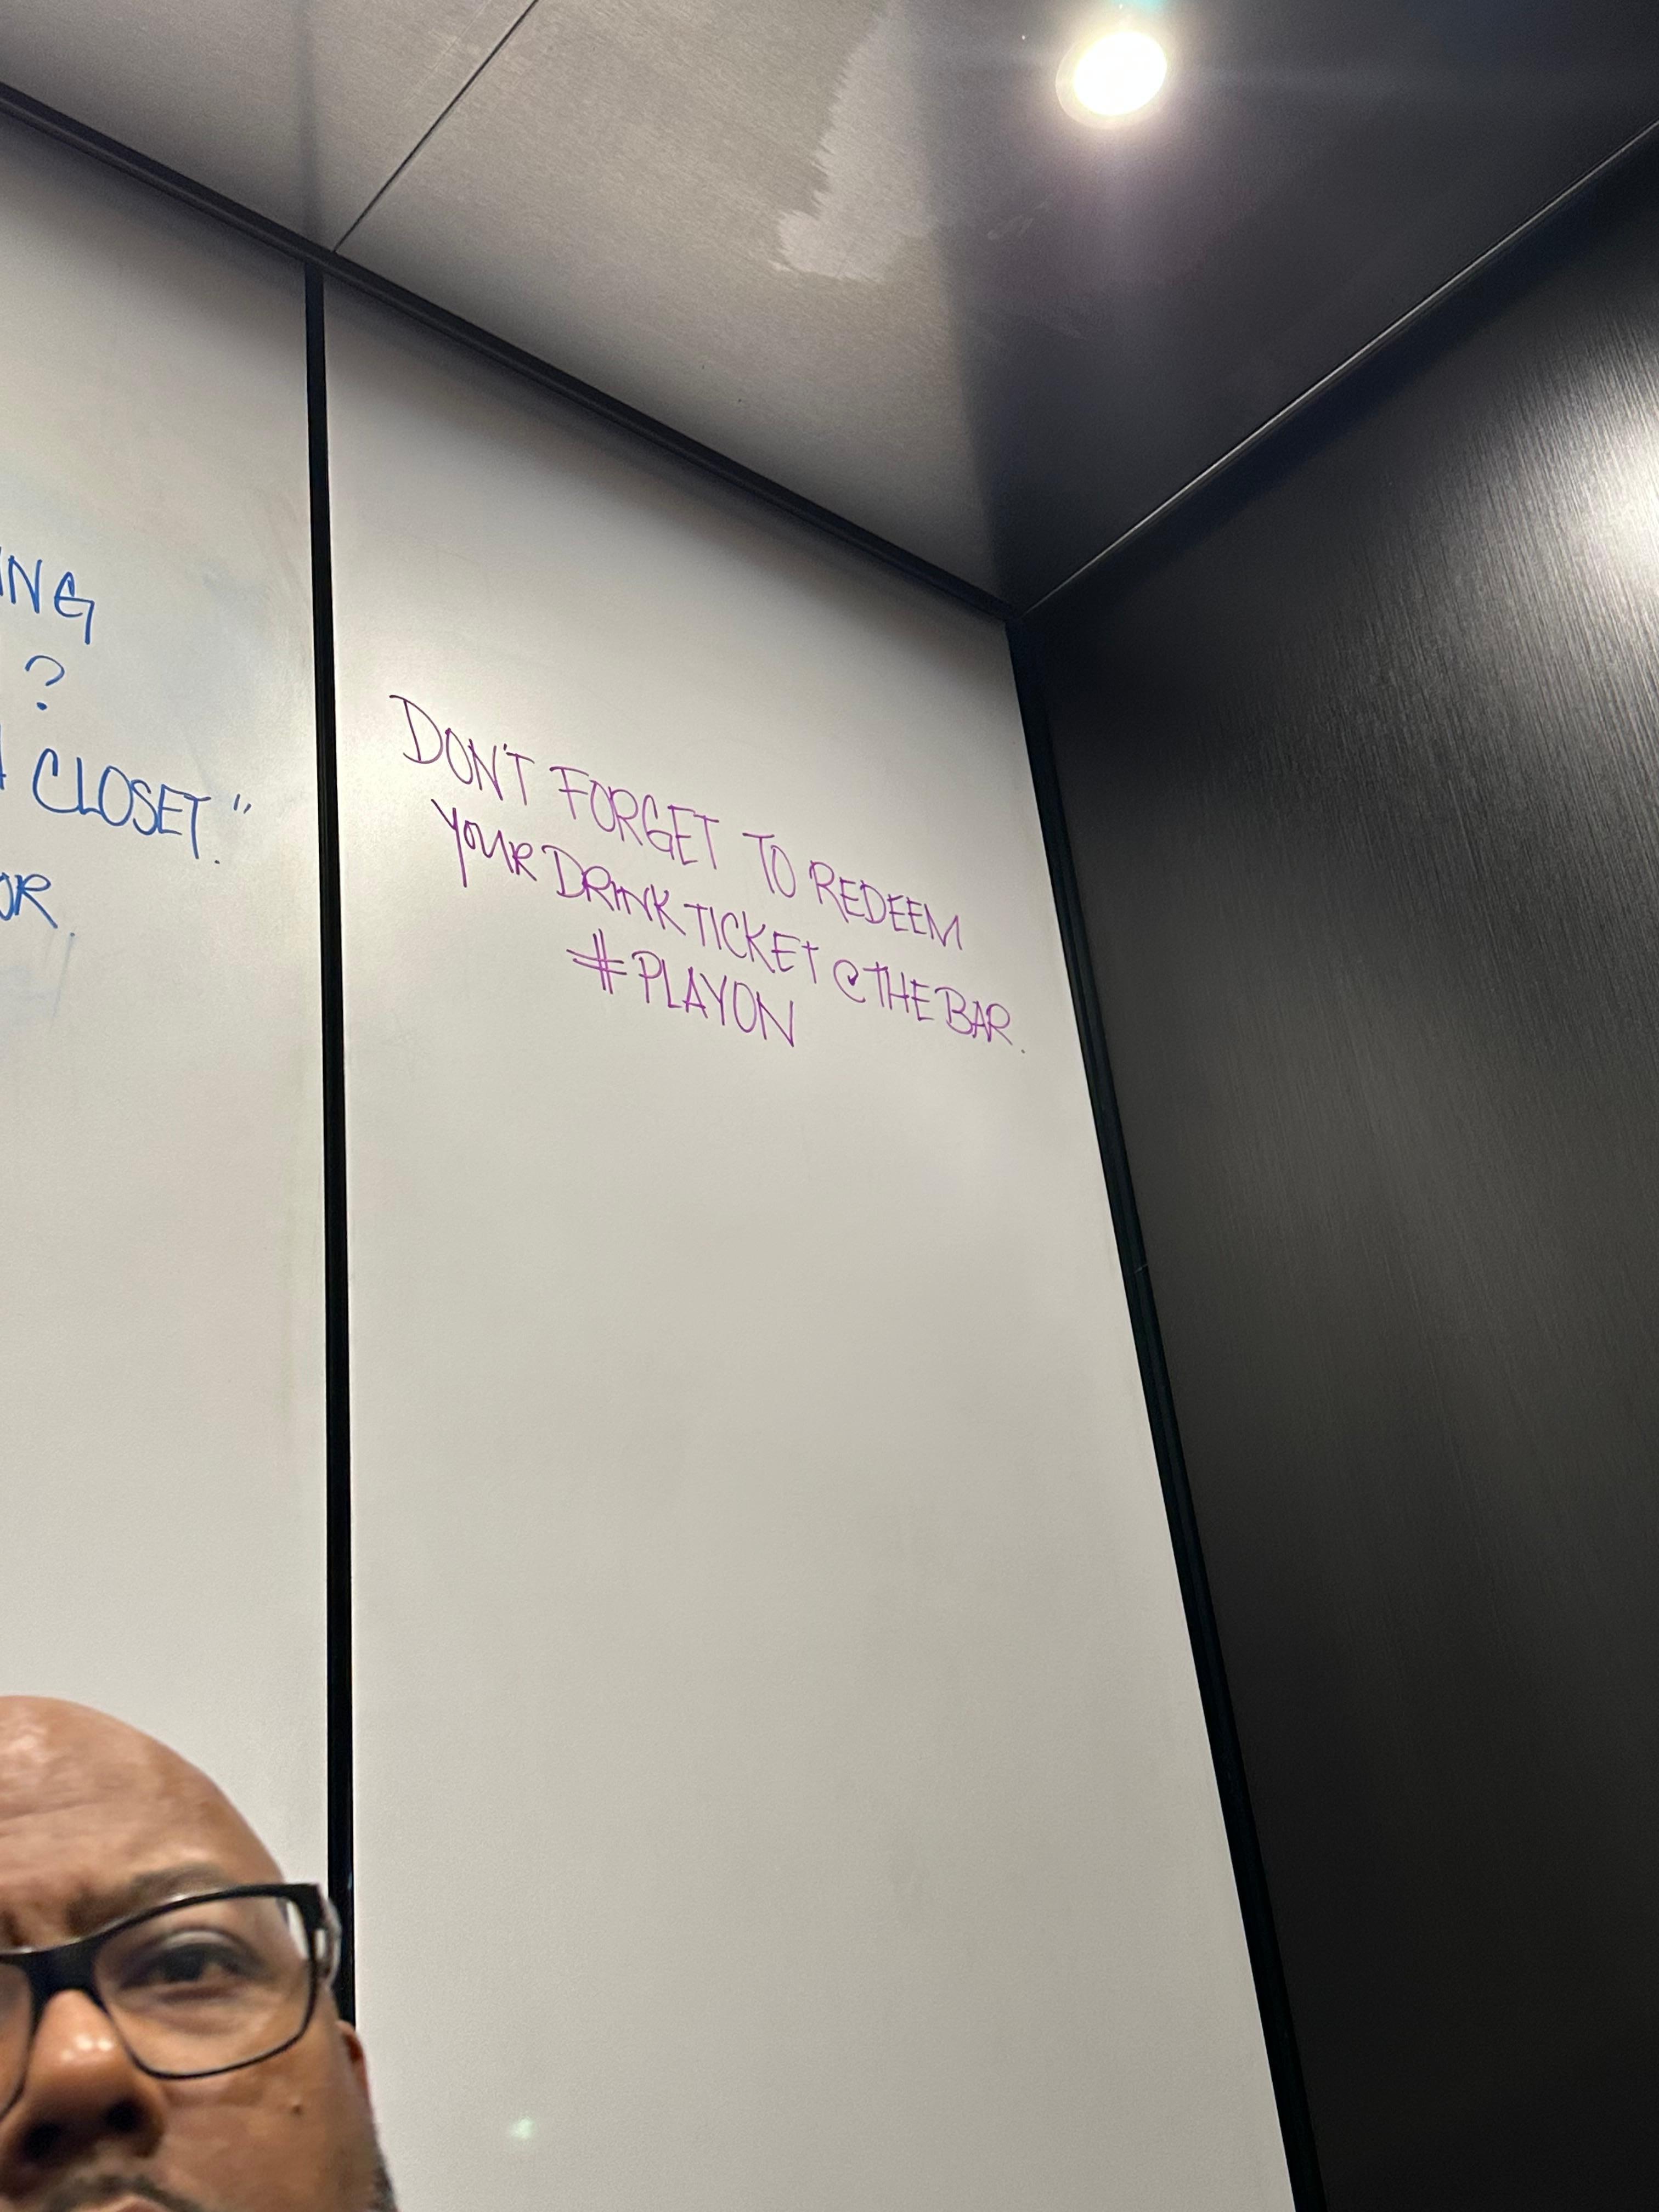 ?
CLOSET."
DON'T FORGET TO REDEEM
YOUR DRINK TICKET @ THE BAR.
#PLAYON